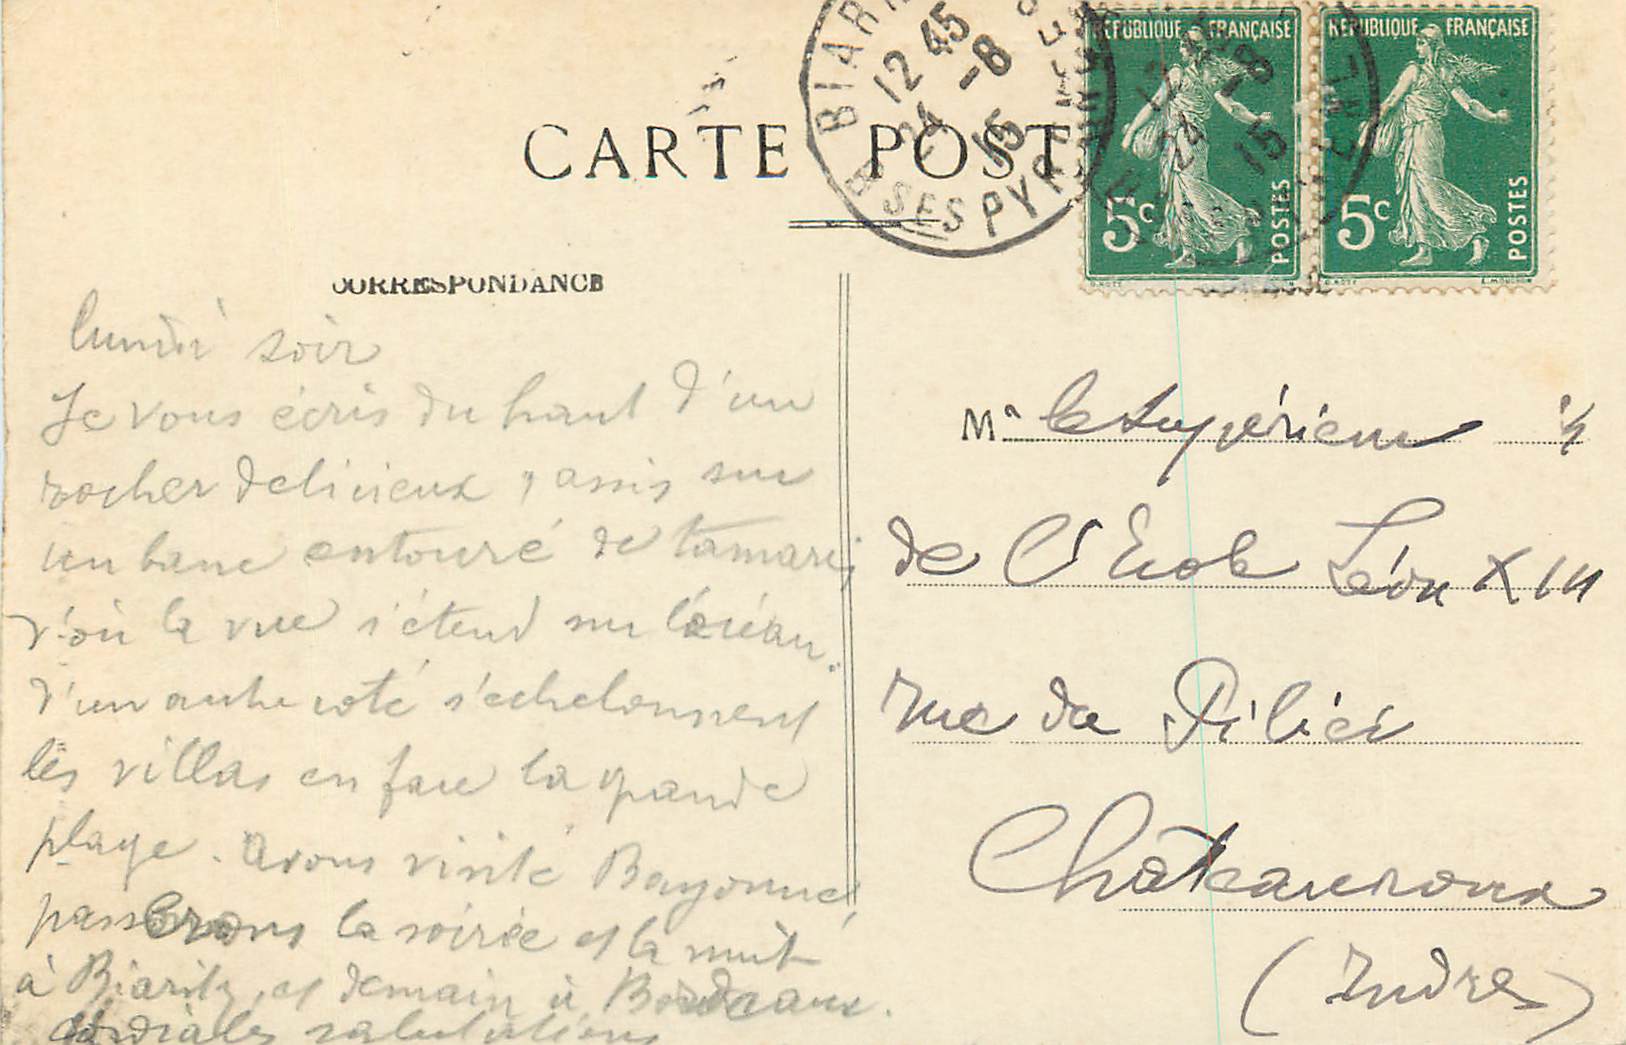 CARTE POST
CORRESPONDANCE
BIARR
12 45
24 -8
15
BSES PYRENEES
RÉPUBLIQUE FRANÇAISE
5c
POSTES
RÉPUBLIQUE FRANÇAISE
5c
POSTES
12 45
24 -8
15
O. ROTY
O. ROTY E. MOUCHON
lundi soir
Je vous écris du haut d'un
rocher delicieux, assis sur
un banc entouré de tamaris
d'où la vue s'étend sur l'océan.
d'un autre coté s'echelonnent
les villas en face la grande
plage. Avons visité Bayonne,
passerons la soirée et la nuit
à Biaritz, et demain à Bordeaux.
Cordiales salutations
Mr le Supérieur
de l'Ecole Léon XIII
rue de Pilier
Châteauroux
(Indre)